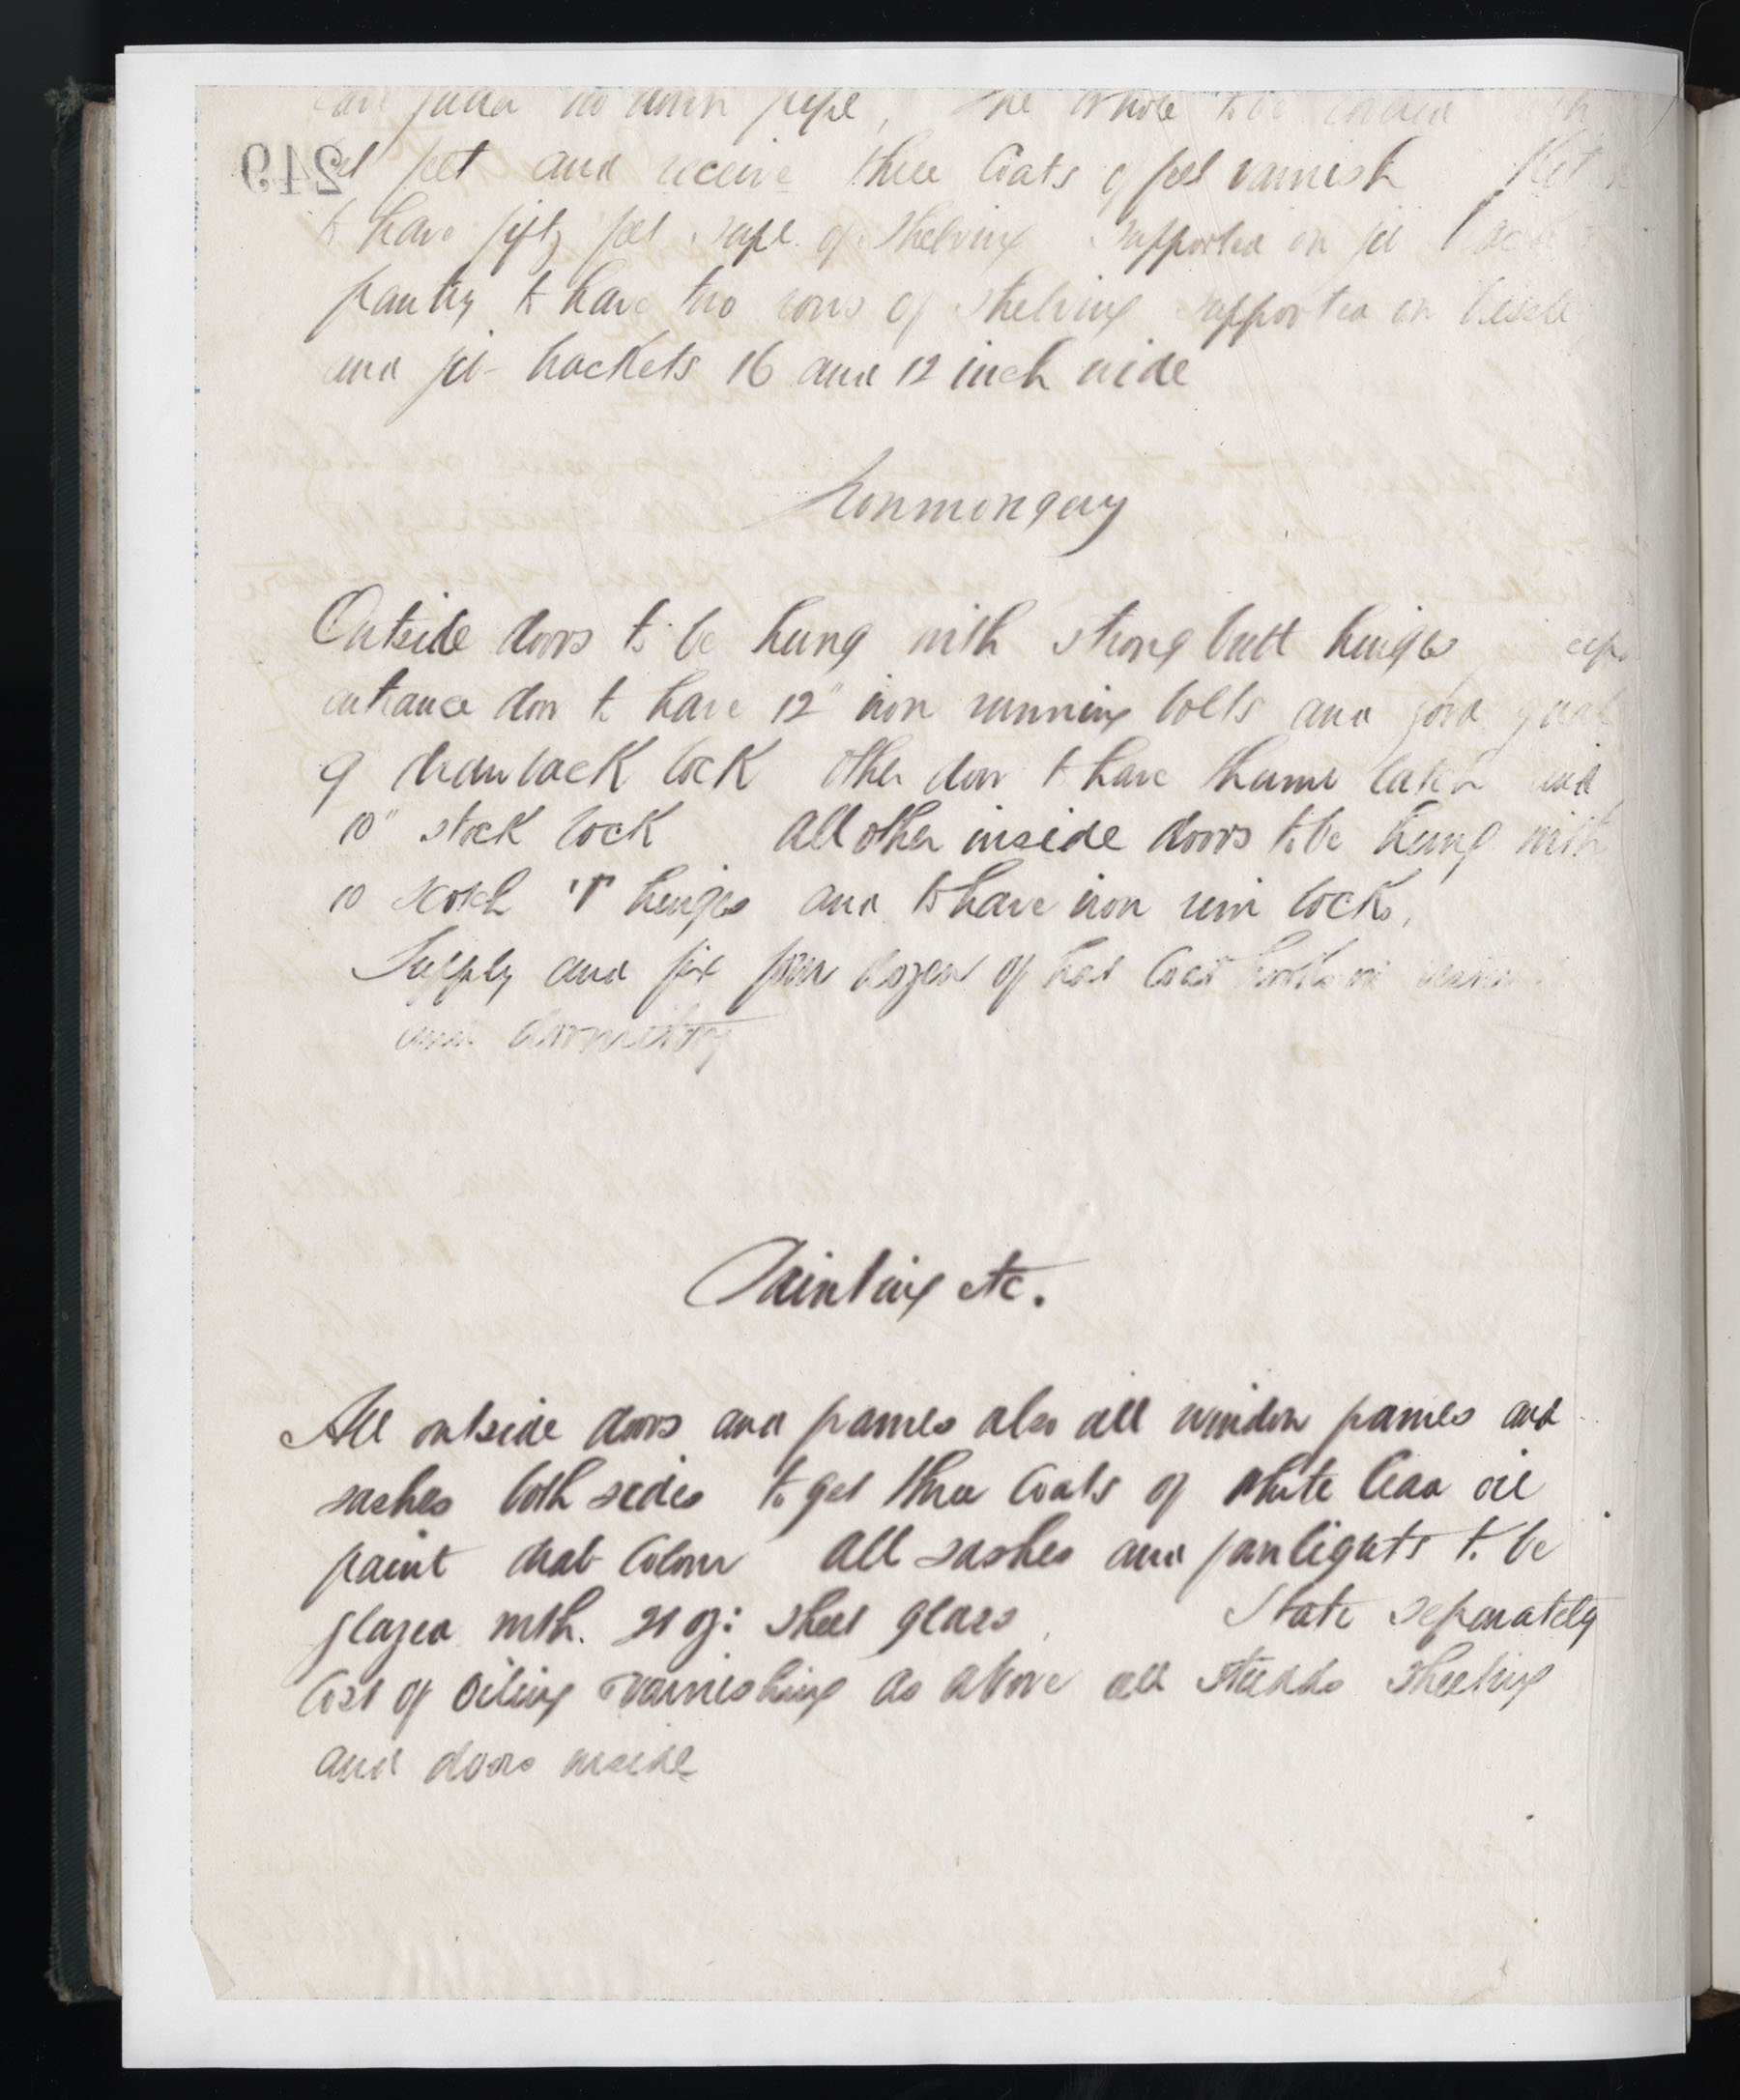 pipe, The whole to be
249
and receive three Coats of varnish
to have fifty feet supl. of Shelving supported on
pantry to have two rows of shelving supported on
and brackets 16 and 12 inch wide
Ironmongery
Outside doors to be hung with strong butt hinges
entrance door to have 12" iron running bolts and good
drawback lock other door to have thumb latch and
10" stock lock all other inside doors to be hung with
10 scotch T hinges and to have iron rim locks.
Supply and fix four dozen of hat Coat hooks in
and dormitory
Painting etc.
All outside doors and frames also all window frames and
sashes both sides to get three Coats of white lead oil
paint drab Colour All sashes and fanlights to be
glazed with 21 oz: sheet glass. State separately
Cost of oiling varnishing as above all studds sheeting
and doors inside